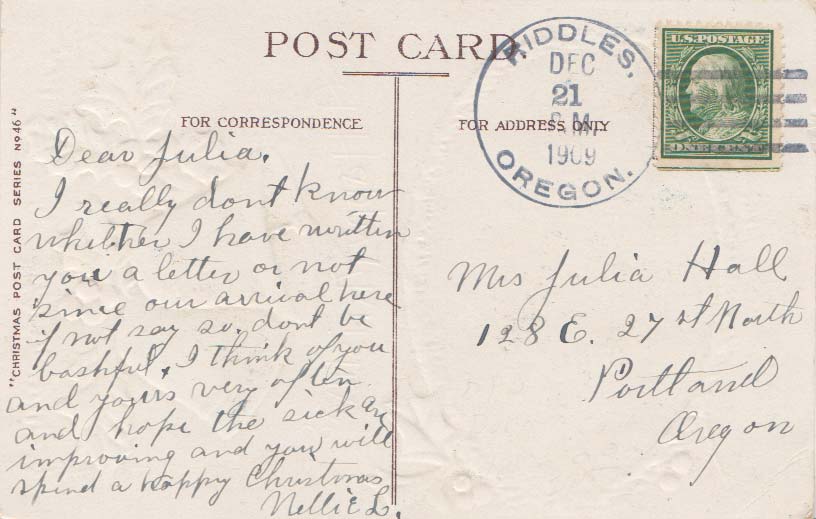 POST CARD.
FOR CORRESPONDENCE
FOR ADDRESS ONLY
"CHRISTMAS POST CARD SERIES No46"
RIDDLES,
DEC
21
P.M.
1909
OREGON.
U.S.POSTAGE
ONE CENT
Dear Julia.
I really dont know
whether I have written
you a letter or not
since our arrival here
if not say so. dont be
bashful. I think of you
and yours very often
and hope the sick are
improving and you will
spend a happy Christmas
Nellie L.
Mrs Julia Hall
128 E. 27 st North
Portland
Oregon